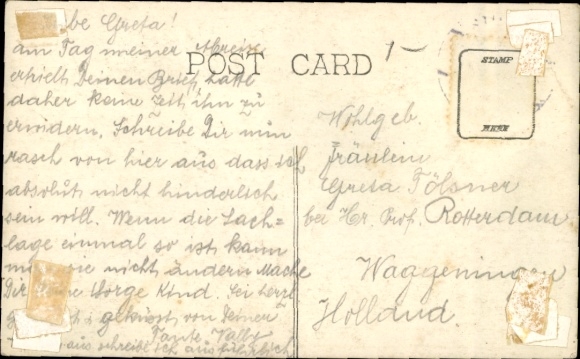 be Greta!
am Tag meiner Abreise
erhielt Deinen Brief, hatte
daher keine Zeit, ihn zu
erwidern. Schreibe Dir nun
rasch von hier aus dass ich
absolut nicht hinderlich
sein will. Wenn die Sach=
lage einmal so ist kann
nicht ändern Mache
Dir keine Sorge Kind. Sei herzl
geküsst von Deiner
Tante Vally
aus schreibe ich ausführlich
POST CARD
1-
STAMP
HERE
Wohlgeb.
Fräulein
Greta Tölsner
bei Hr. Prof. Rotterdam
Waggeningen
Holland.